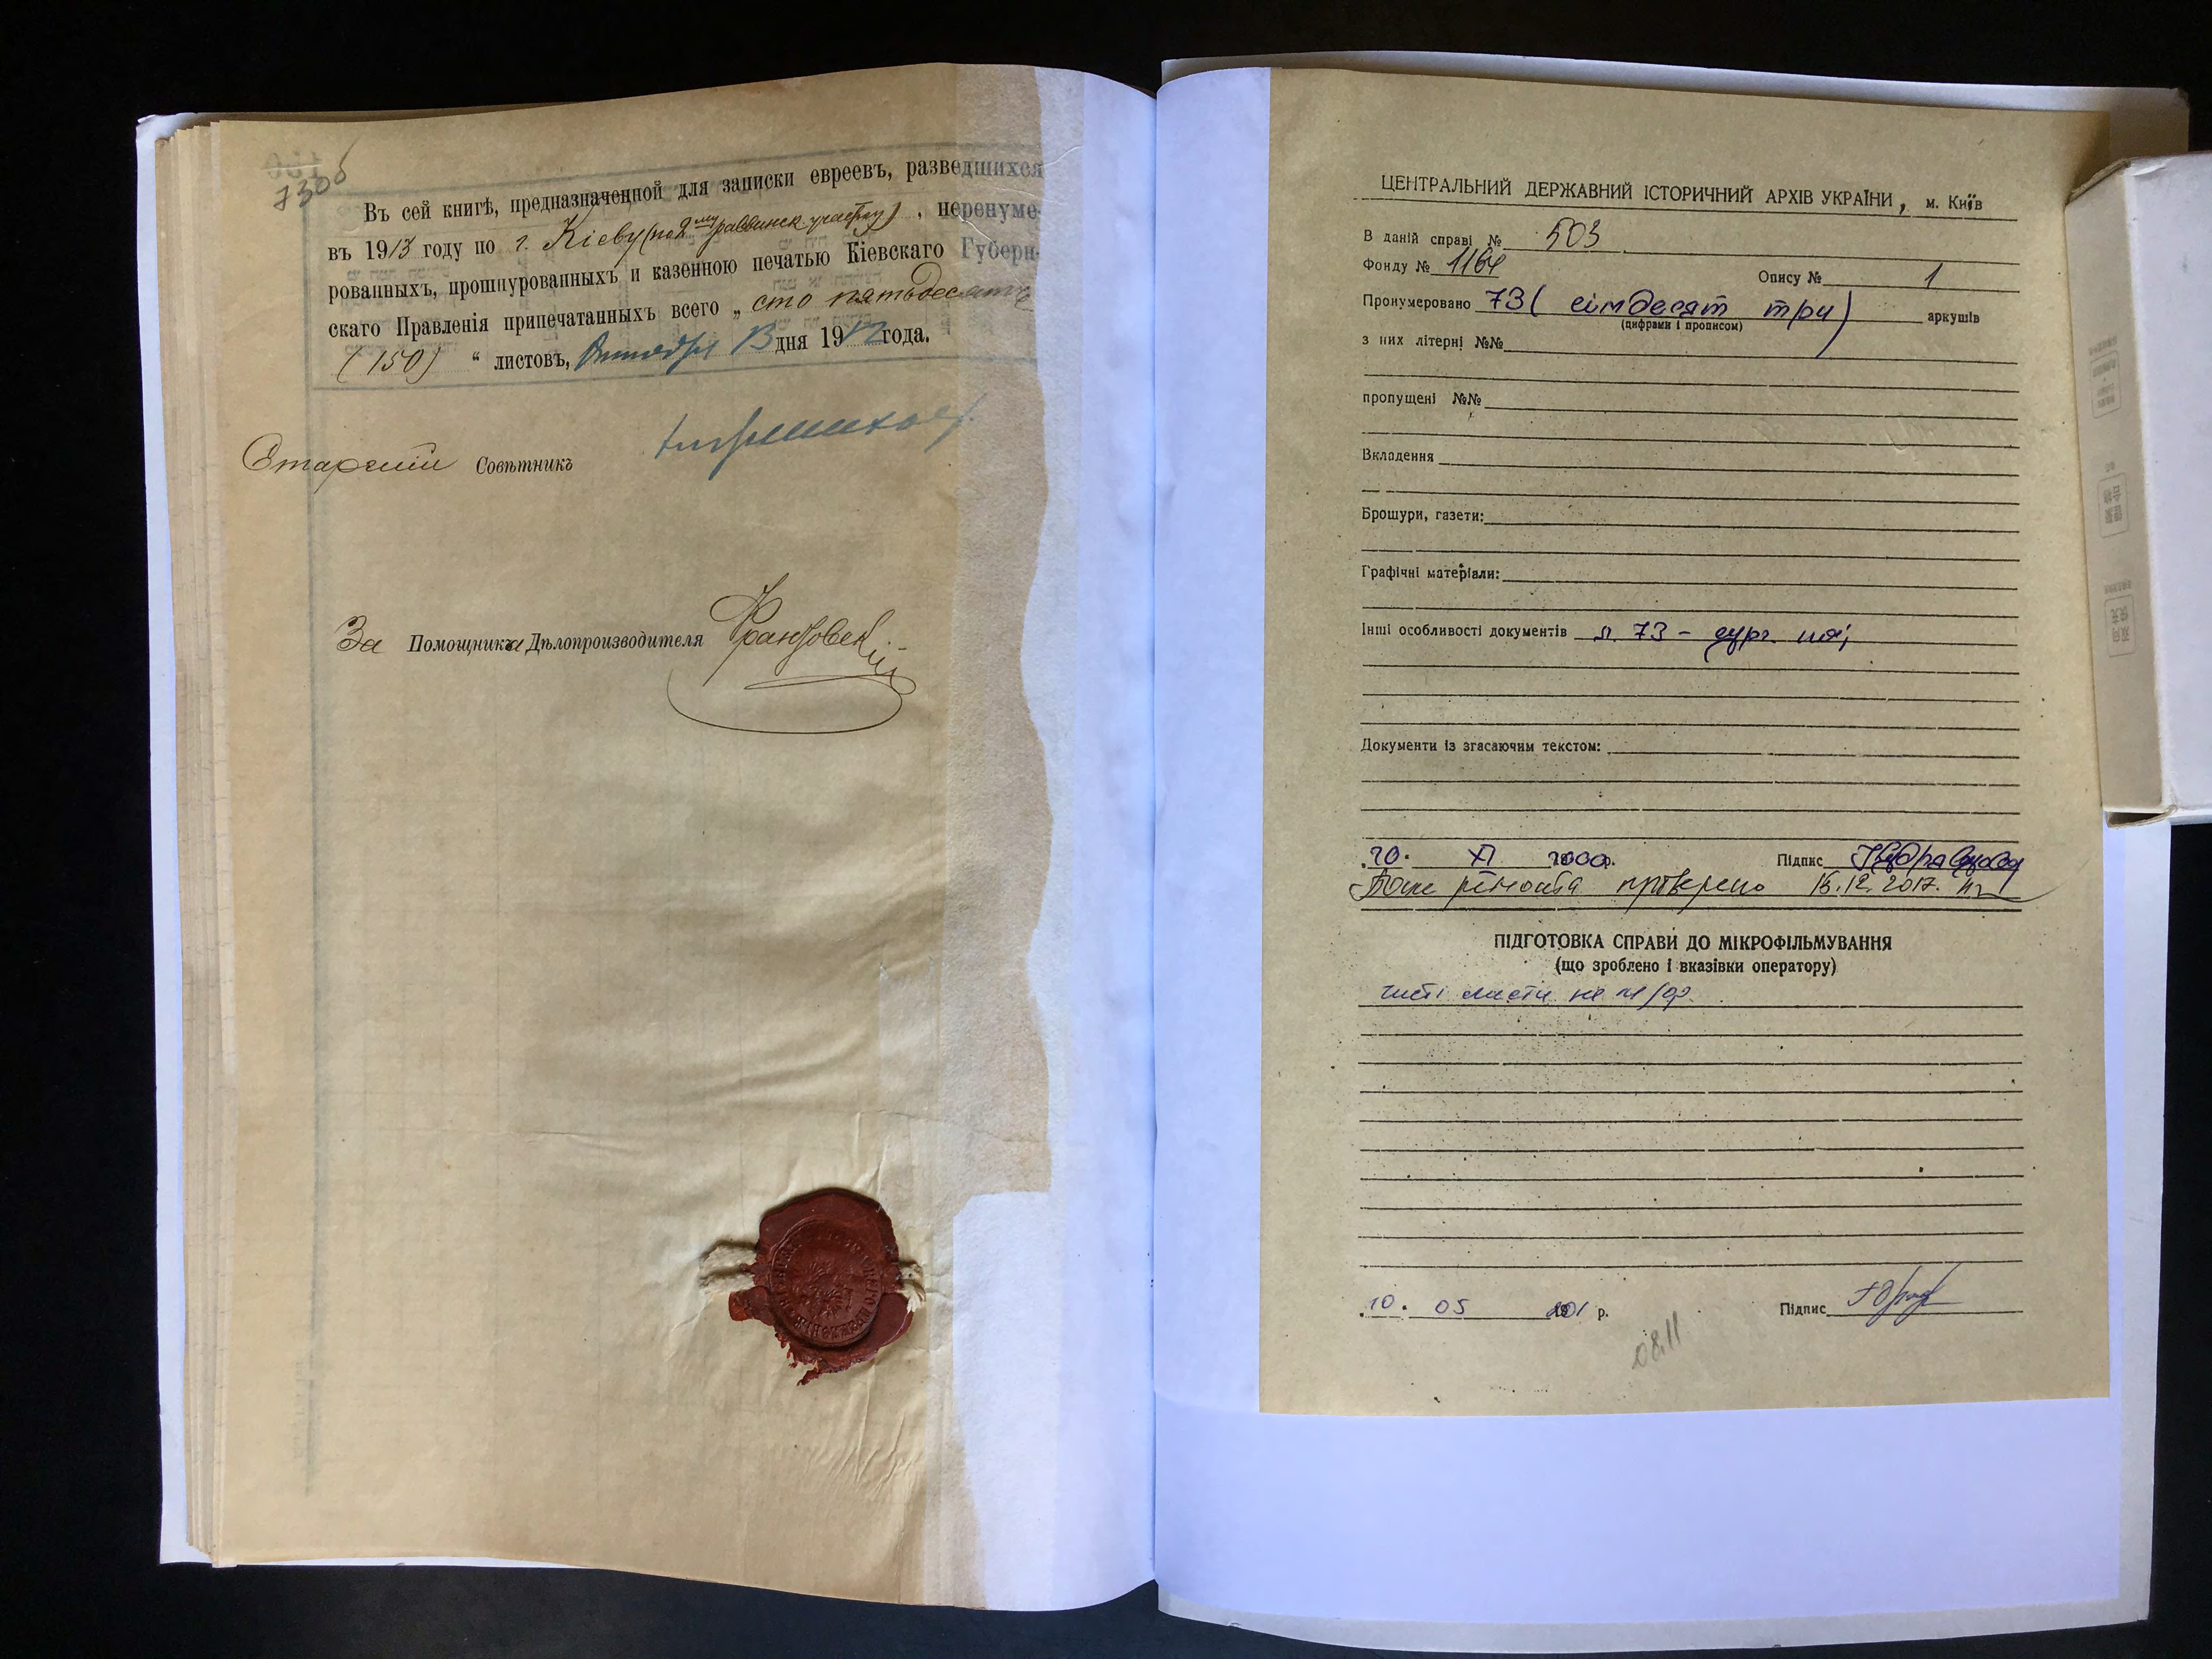 73об
Въ сей книгѣ, предназначенной для записки евреевъ, разведшихся
въ 1913 году по г. Кіеву (по 2му раввинск. участку), перенуме-
рованныхъ, прошнурованныхъ и казенною печатью Кіевскаго Губерн-
скаго Правленія припечатанныхъ всего „ сто пятьдесятъ
(150) “ листовъ, Октября 13 дня 1912 года.
Старшій Совѣтникъ
За Помощника Дѣлопроизводителя
ЦЕНТРАЛЬНИЙ ДЕРЖАВНИЙ ІСТОРИЧНИЙ АРХІВ УКРАЇНИ, м. Київ
В даній справі № 503
Фонду № 1164 Опису № 1
Пронумеровано 73 ( сімдесят три ) аркушів
(цифрами і прописом)
з них літерні №№
пропущені №№
Вкладення
Брошури, газети:
Графічні матеріали:
Інші особливості документів л. 73 - сург. печ;
Документи із згасаючим текстом:
20. XI 2000 р. Підпис
После ремонта проверено 16.12.2017.
ПІДГОТОВКА СПРАВИ ДО МІКРОФІЛЬМУВАННЯ
(що зроблено і вказівки оператору)
чисті листи не м/ф.
10. 05 2001 р. Підпис
08.11